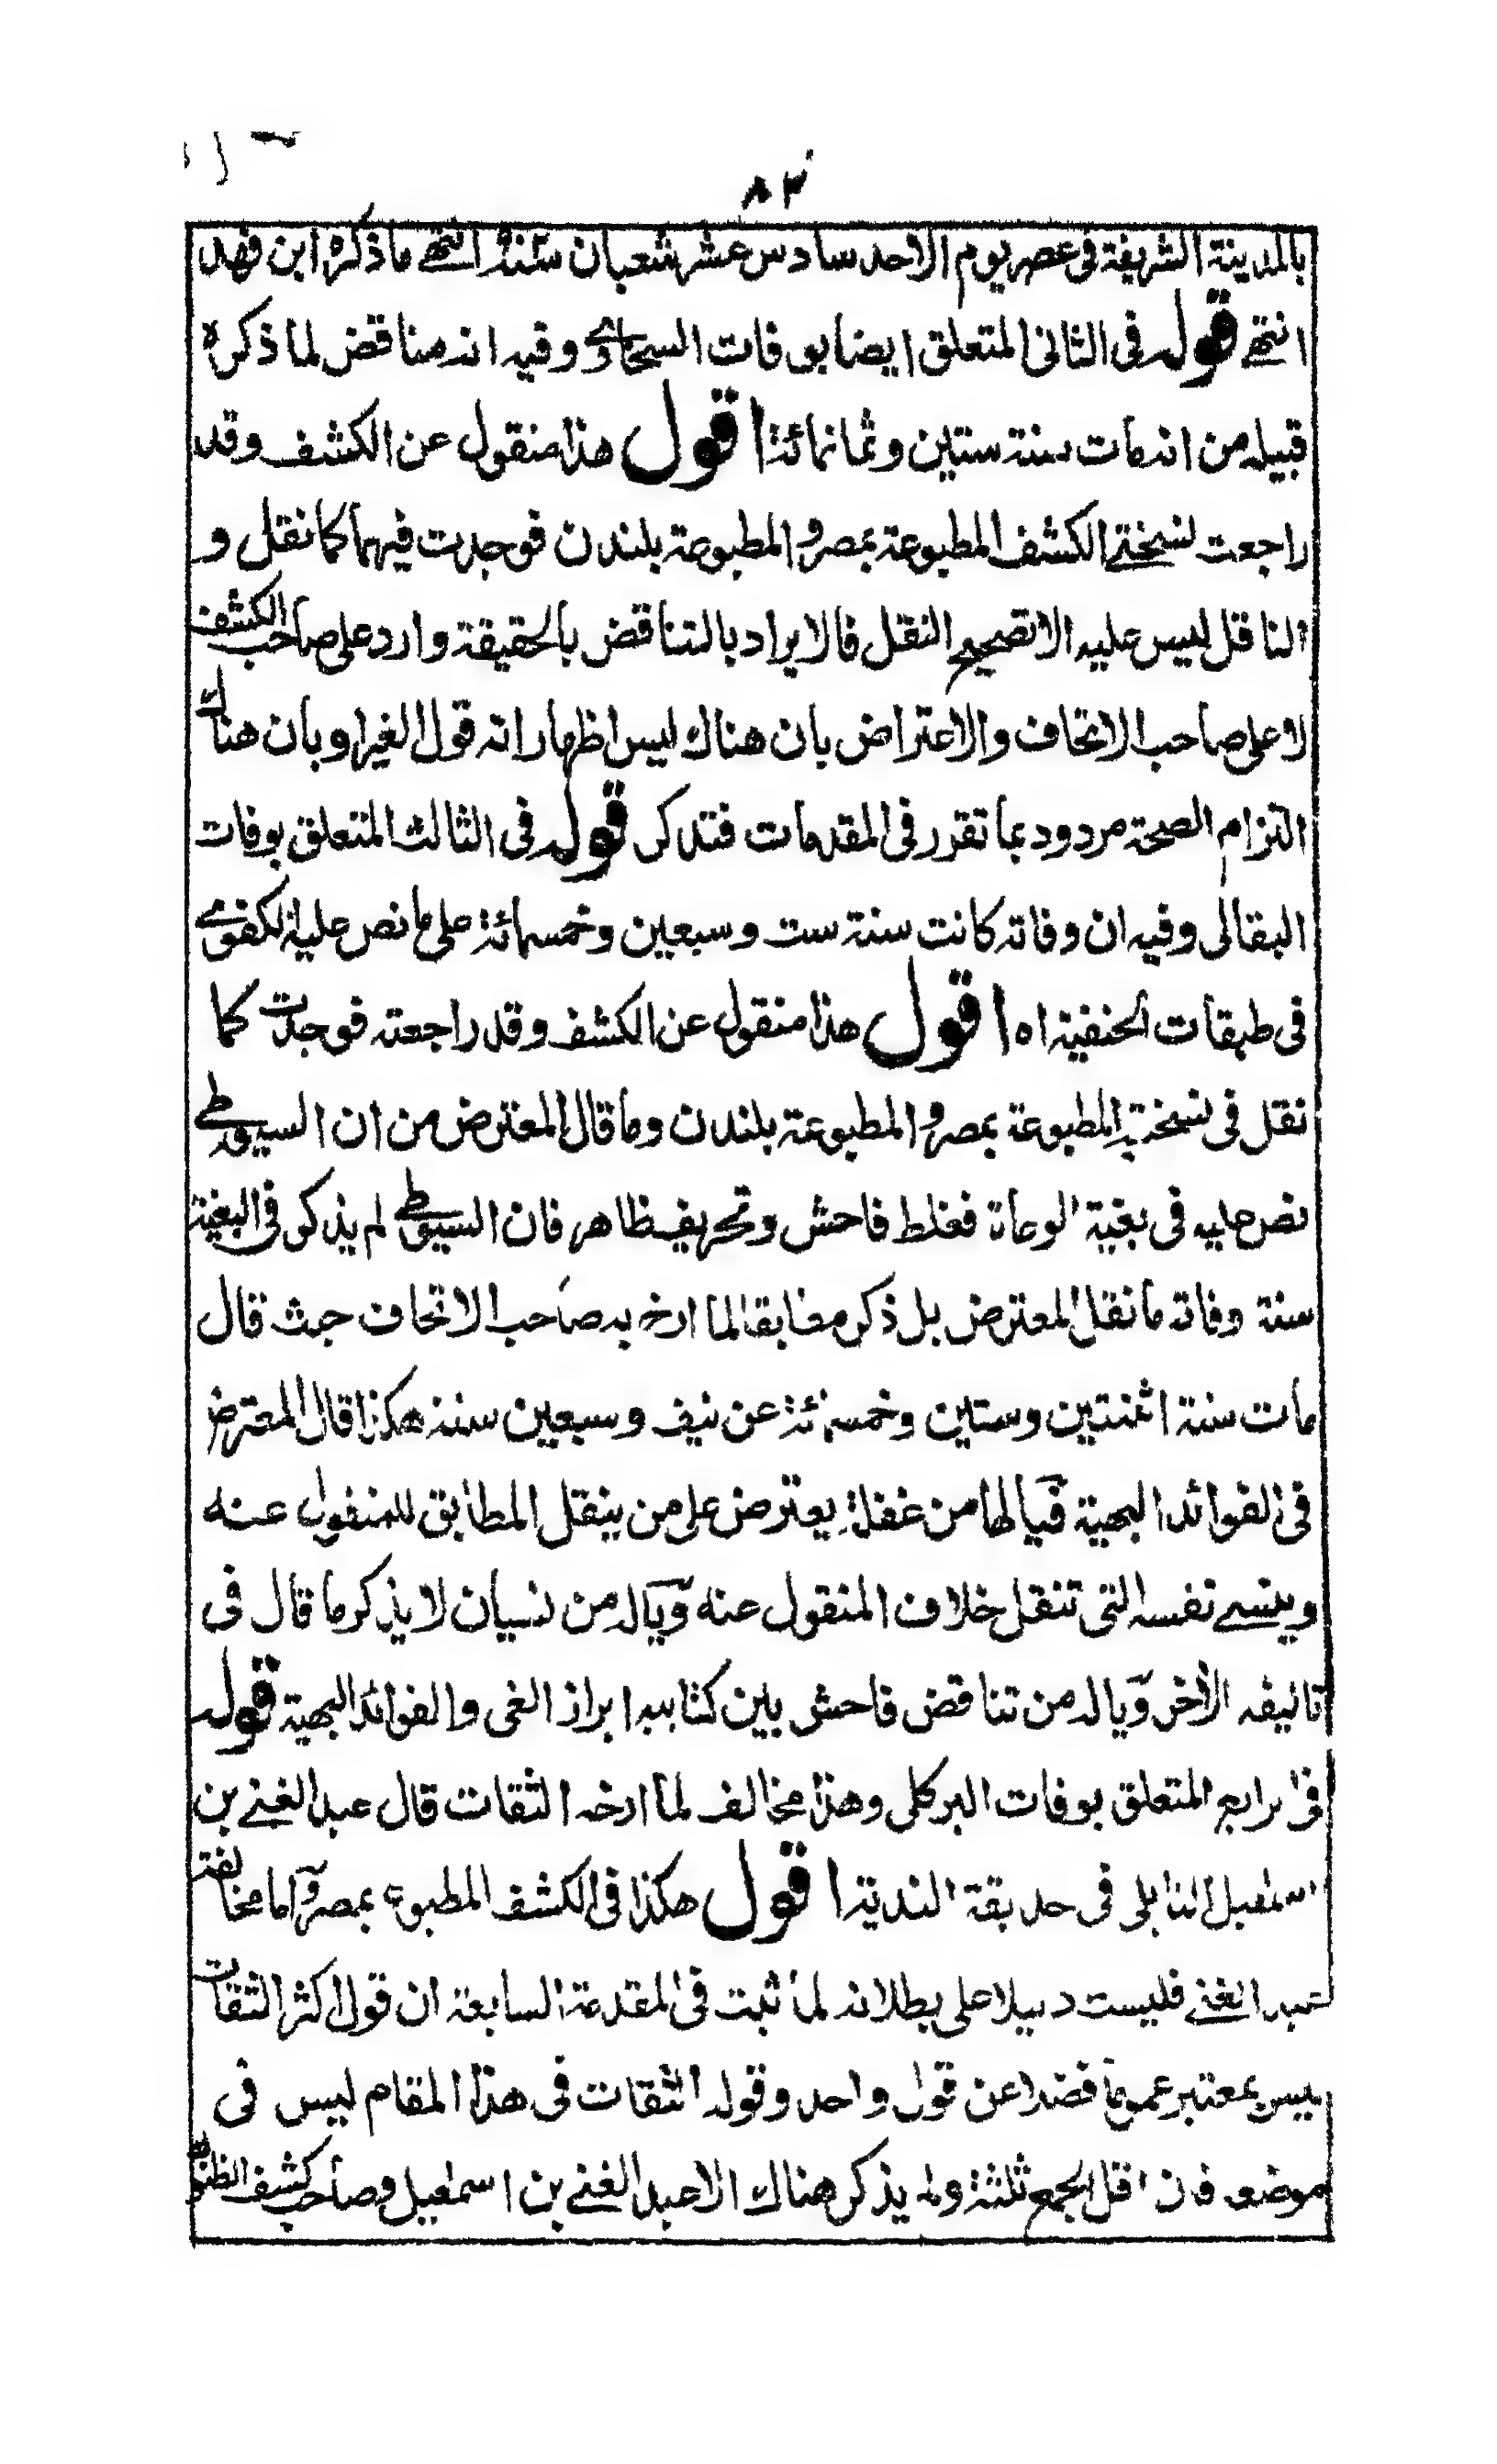 ٨٢
بالمدينة الشريفة فى عصر يوم الاحد سادس عشر شعبان انتهى ما ذكره ابن فهد
انتهى قوله فى الثانى المتعلق ايضا بوفات السخاوى وفيه انه مناقض لما ذكره
قبيله من انه مات سنة ستين وثمانمائة اقول هذا منقول عن الكشف وقد
راجعت نسختى الكشف المطبوعة بمصر والمطبوعة بلندن فوجدت فيهما كما نقل و
الناقل ليس عليه الا تصحيح النقل فالايراد بالتناقض بالحقيقة وارد على صاحب الكشف
لا على صاحب الاتحاف والاعتراض بان هناك ليس اظهار انه قول الغير او بان هناك
التزام الصحة مردود بما تقرر فى المقدمات فتذكر قوله فى الثالث المتعلق بوفات
البقالى وفيه ان وفاته كانت سنة ست وسبعين وخمسمائة على ما نص عليه الكفوى
فى طبقات الحنفية اه اقول هذا منقول عن الكشف وقد راجعته فوجدت كما
نقل فى نسختيه المطبوعة بمصر والمطبوعة بلندن وما قال المعترض من ان السيوطى
نص عليه فى بغية الوعاة فغلط فاحش وتحريف ظاهر فان السيوطى لم يذكر فى البغية
سنة وفاته ما نقل المعترض بل ذكر مطابقا لما ارخ به صاحب الاتحاف حيث قال
مات سنة اثنتين وستين وخمسمائة عن نيف وسبعين سنة هكذا قال المعترض
فى الفوائد البهية فيا لها من غفلة يعترض على من ينقل المطابق للمنقول عنه
وينسى نفسه التى تنقل خلاف المنقول عنه ويا له من نسيان لا يذكر ما قال فى
تاليفه الأخر ويا له من تناقض فاحش بين كتابيه ابراز الغى والفوائد البهية قوله
فى الرابع المتعلق بوفات البركلى وهذا مخالف لما ارخه الثقات قال عبد الغنى بن
اسمعيل النابلسى فى حديقة الندية اقول هكذا فى الكشف المطبوع بمصر واما مخالفة
عبد الغنى فليست دليلا على بطلانه لما ثبت فى المقدمة السابعة ان قول اكثر الثقات
ليس بمعتبر عموما فضلا عن قول واحد وقوله الثقات فى هذا المقام ليس فى
موضعه فان اقل الجمع ثلثة ولم يذكر هناك الا عبد الغنى بن اسمعيل وصاحب كشف الظنون